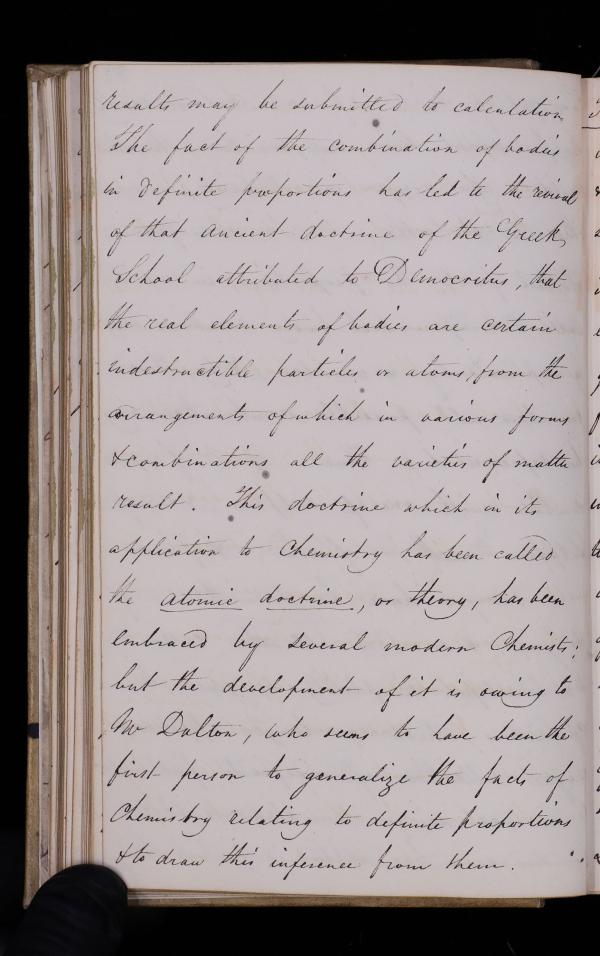 results may be submitted to calculation
The fact of the combination of bodies
in definite proportions has led to the revival
of that ancient doctrine of the Greek
School attributed to Democritus, that
the real elements of bodies are certain
indestructible particles or atoms, from the
arrangements of which in various forms
& combinations all the varieties of matter
result. This doctrine which in its
application to Chemistry has been called
the atomic doctrine, or theory, has been
embraced by several modern Chemists;
but the development of it is owing to
Mr Dalton, who seems to have been the
first person to generalize the facts of
Chemistry relating to definite proportions
& to draw this inference from them.